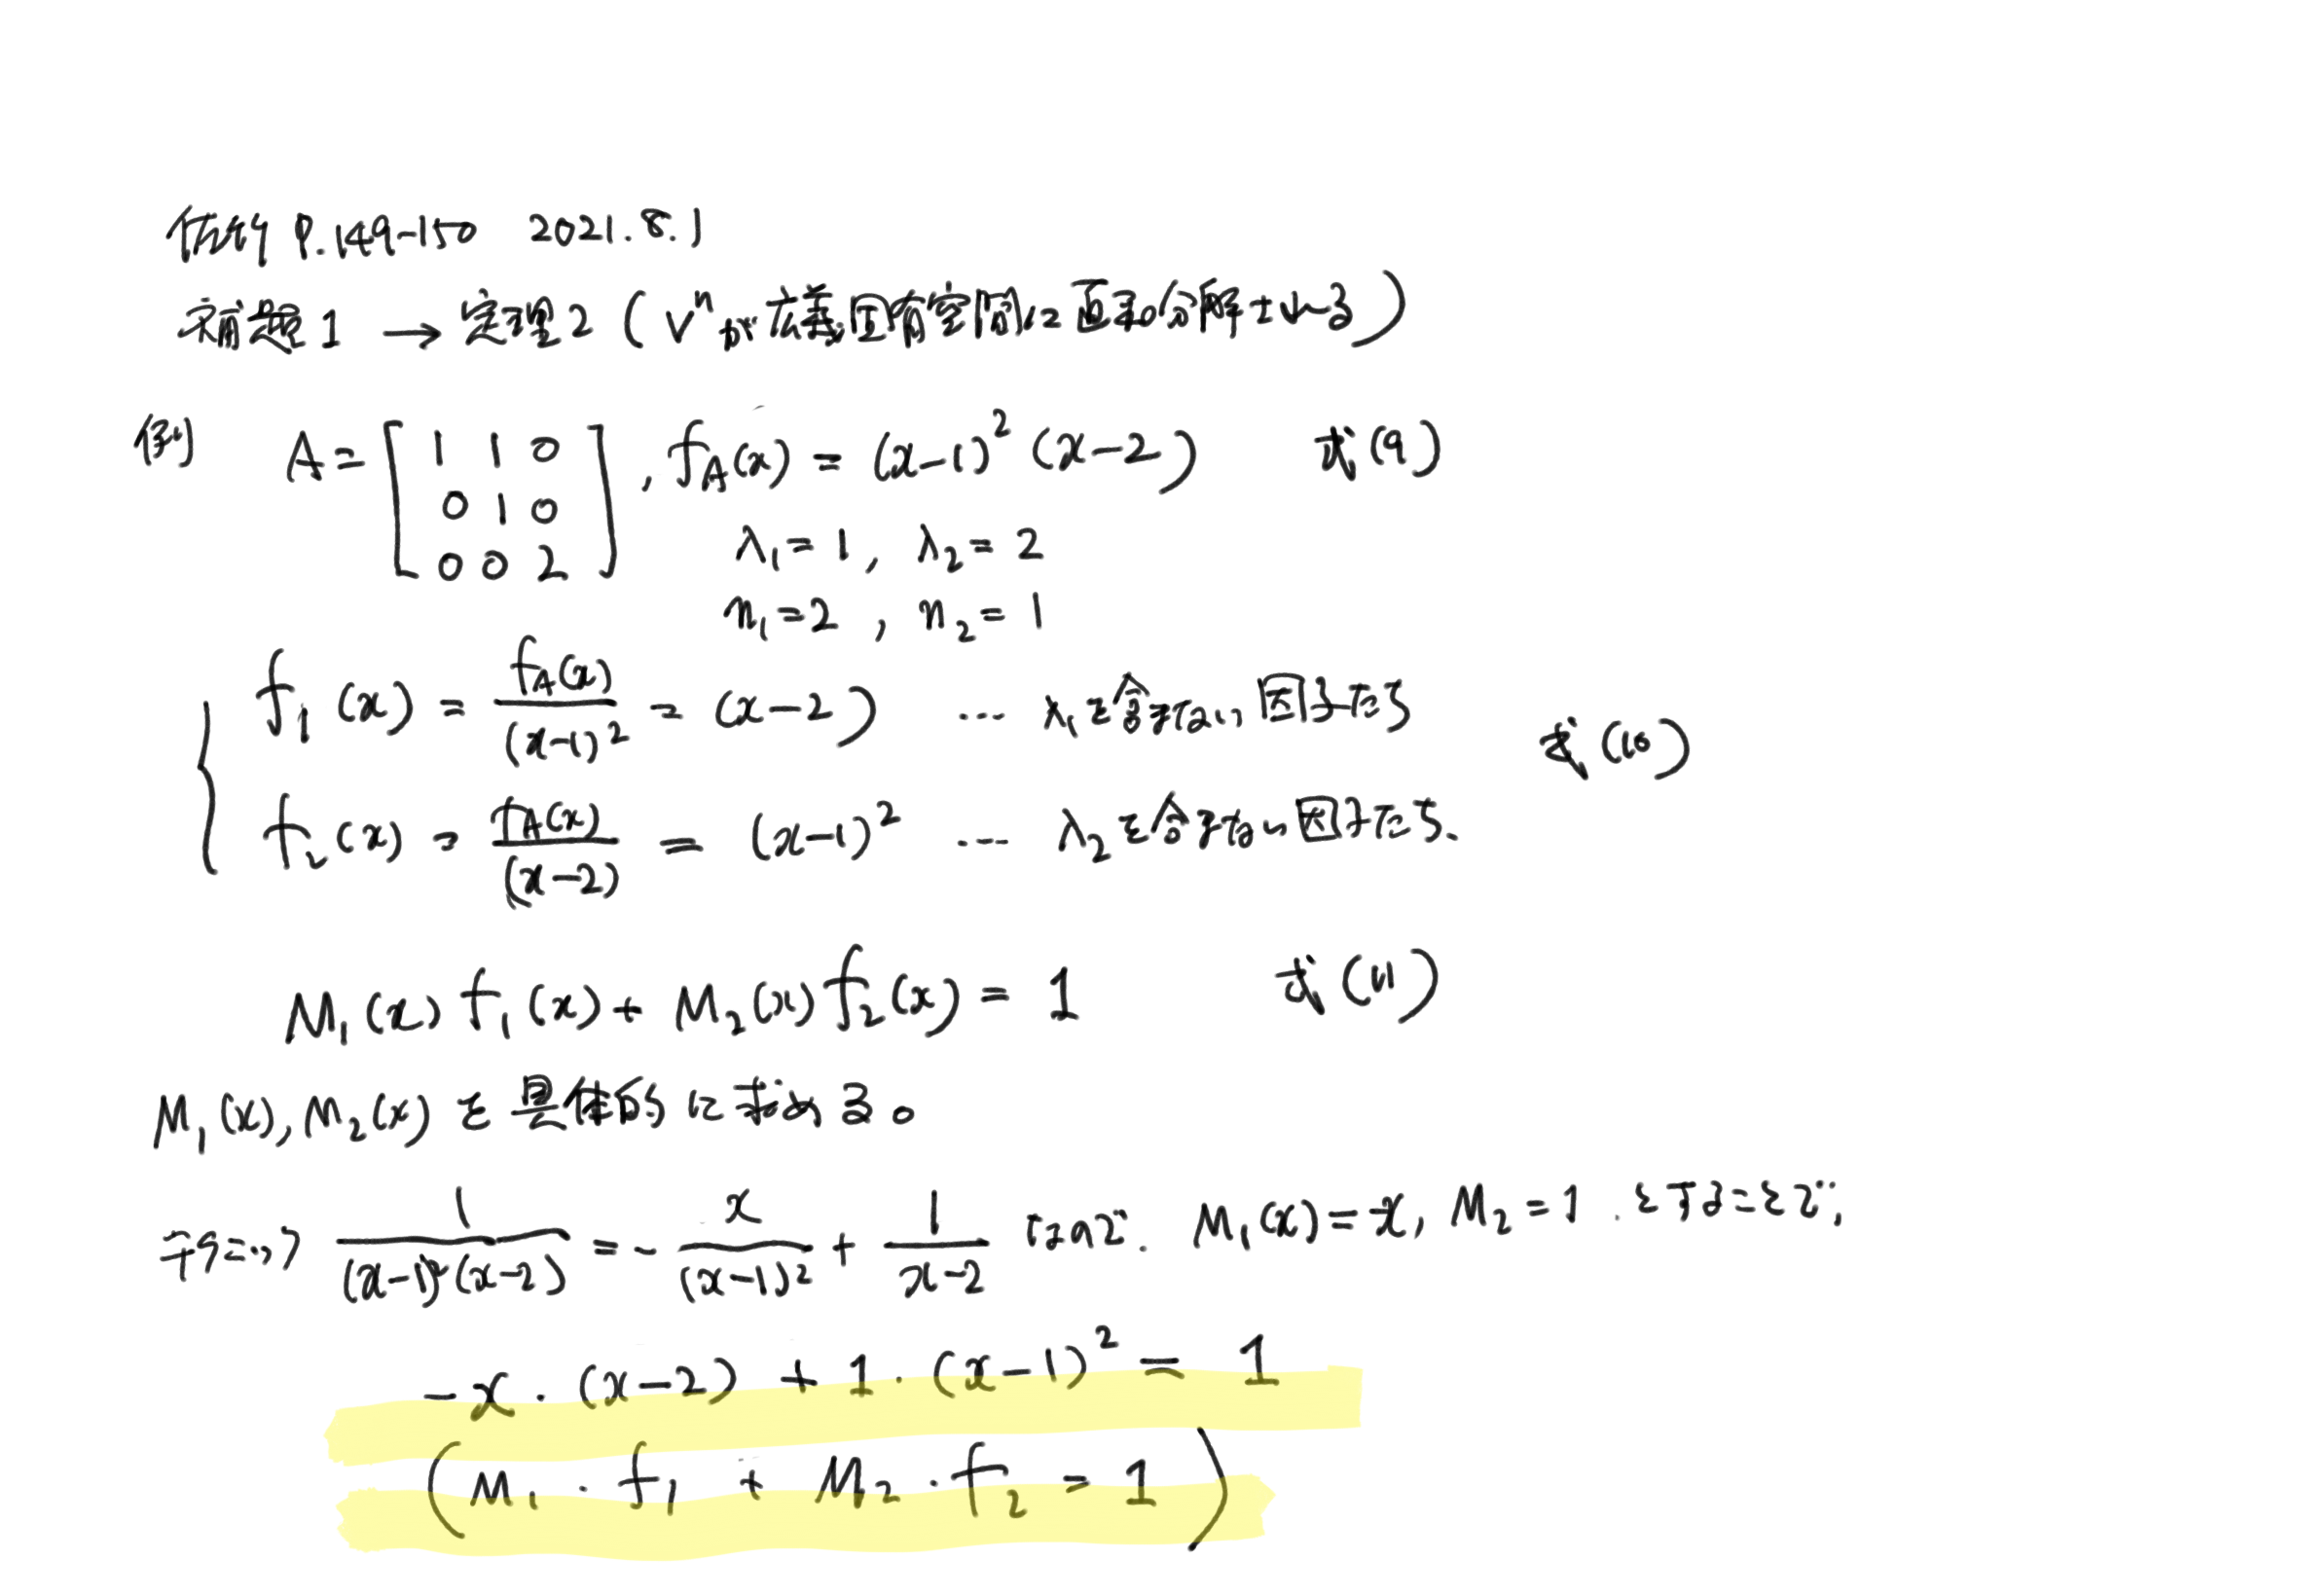 P.149-150 2021.8.1
補題1 → 定理2 (Vⁿが広義固有空間に直和分解される)
例 A = [1 1 0; 0 1 0; 0 0 2], f_A(x) = (x-1)² (x-2) 式(9)
λ₁ = 1, λ₂ = 2
n₁ = 2, n₂ = 1
f₁(x) = f_A(x)/(x-1)² = (x-2) … λ₁を含まない因子たち
式(10)
f₂(x) = f_A(x)/(x-2) = (x-1)² … λ₂を含まない因子たち.
M₁(x) f₁(x) + M₂(x) f₂(x) = 1 式(11)
M₁(x), M₂(x) を具体的に求める。
1/((x-1)²(x-2)) = - x/(x-1)² + 1/(x-2) なので. M₁(x) = -x, M₂ = 1. とすることで,
-x・(x-2) + 1・(x-1)² = 1
(M₁・f₁ + M₂・f₂ = 1)